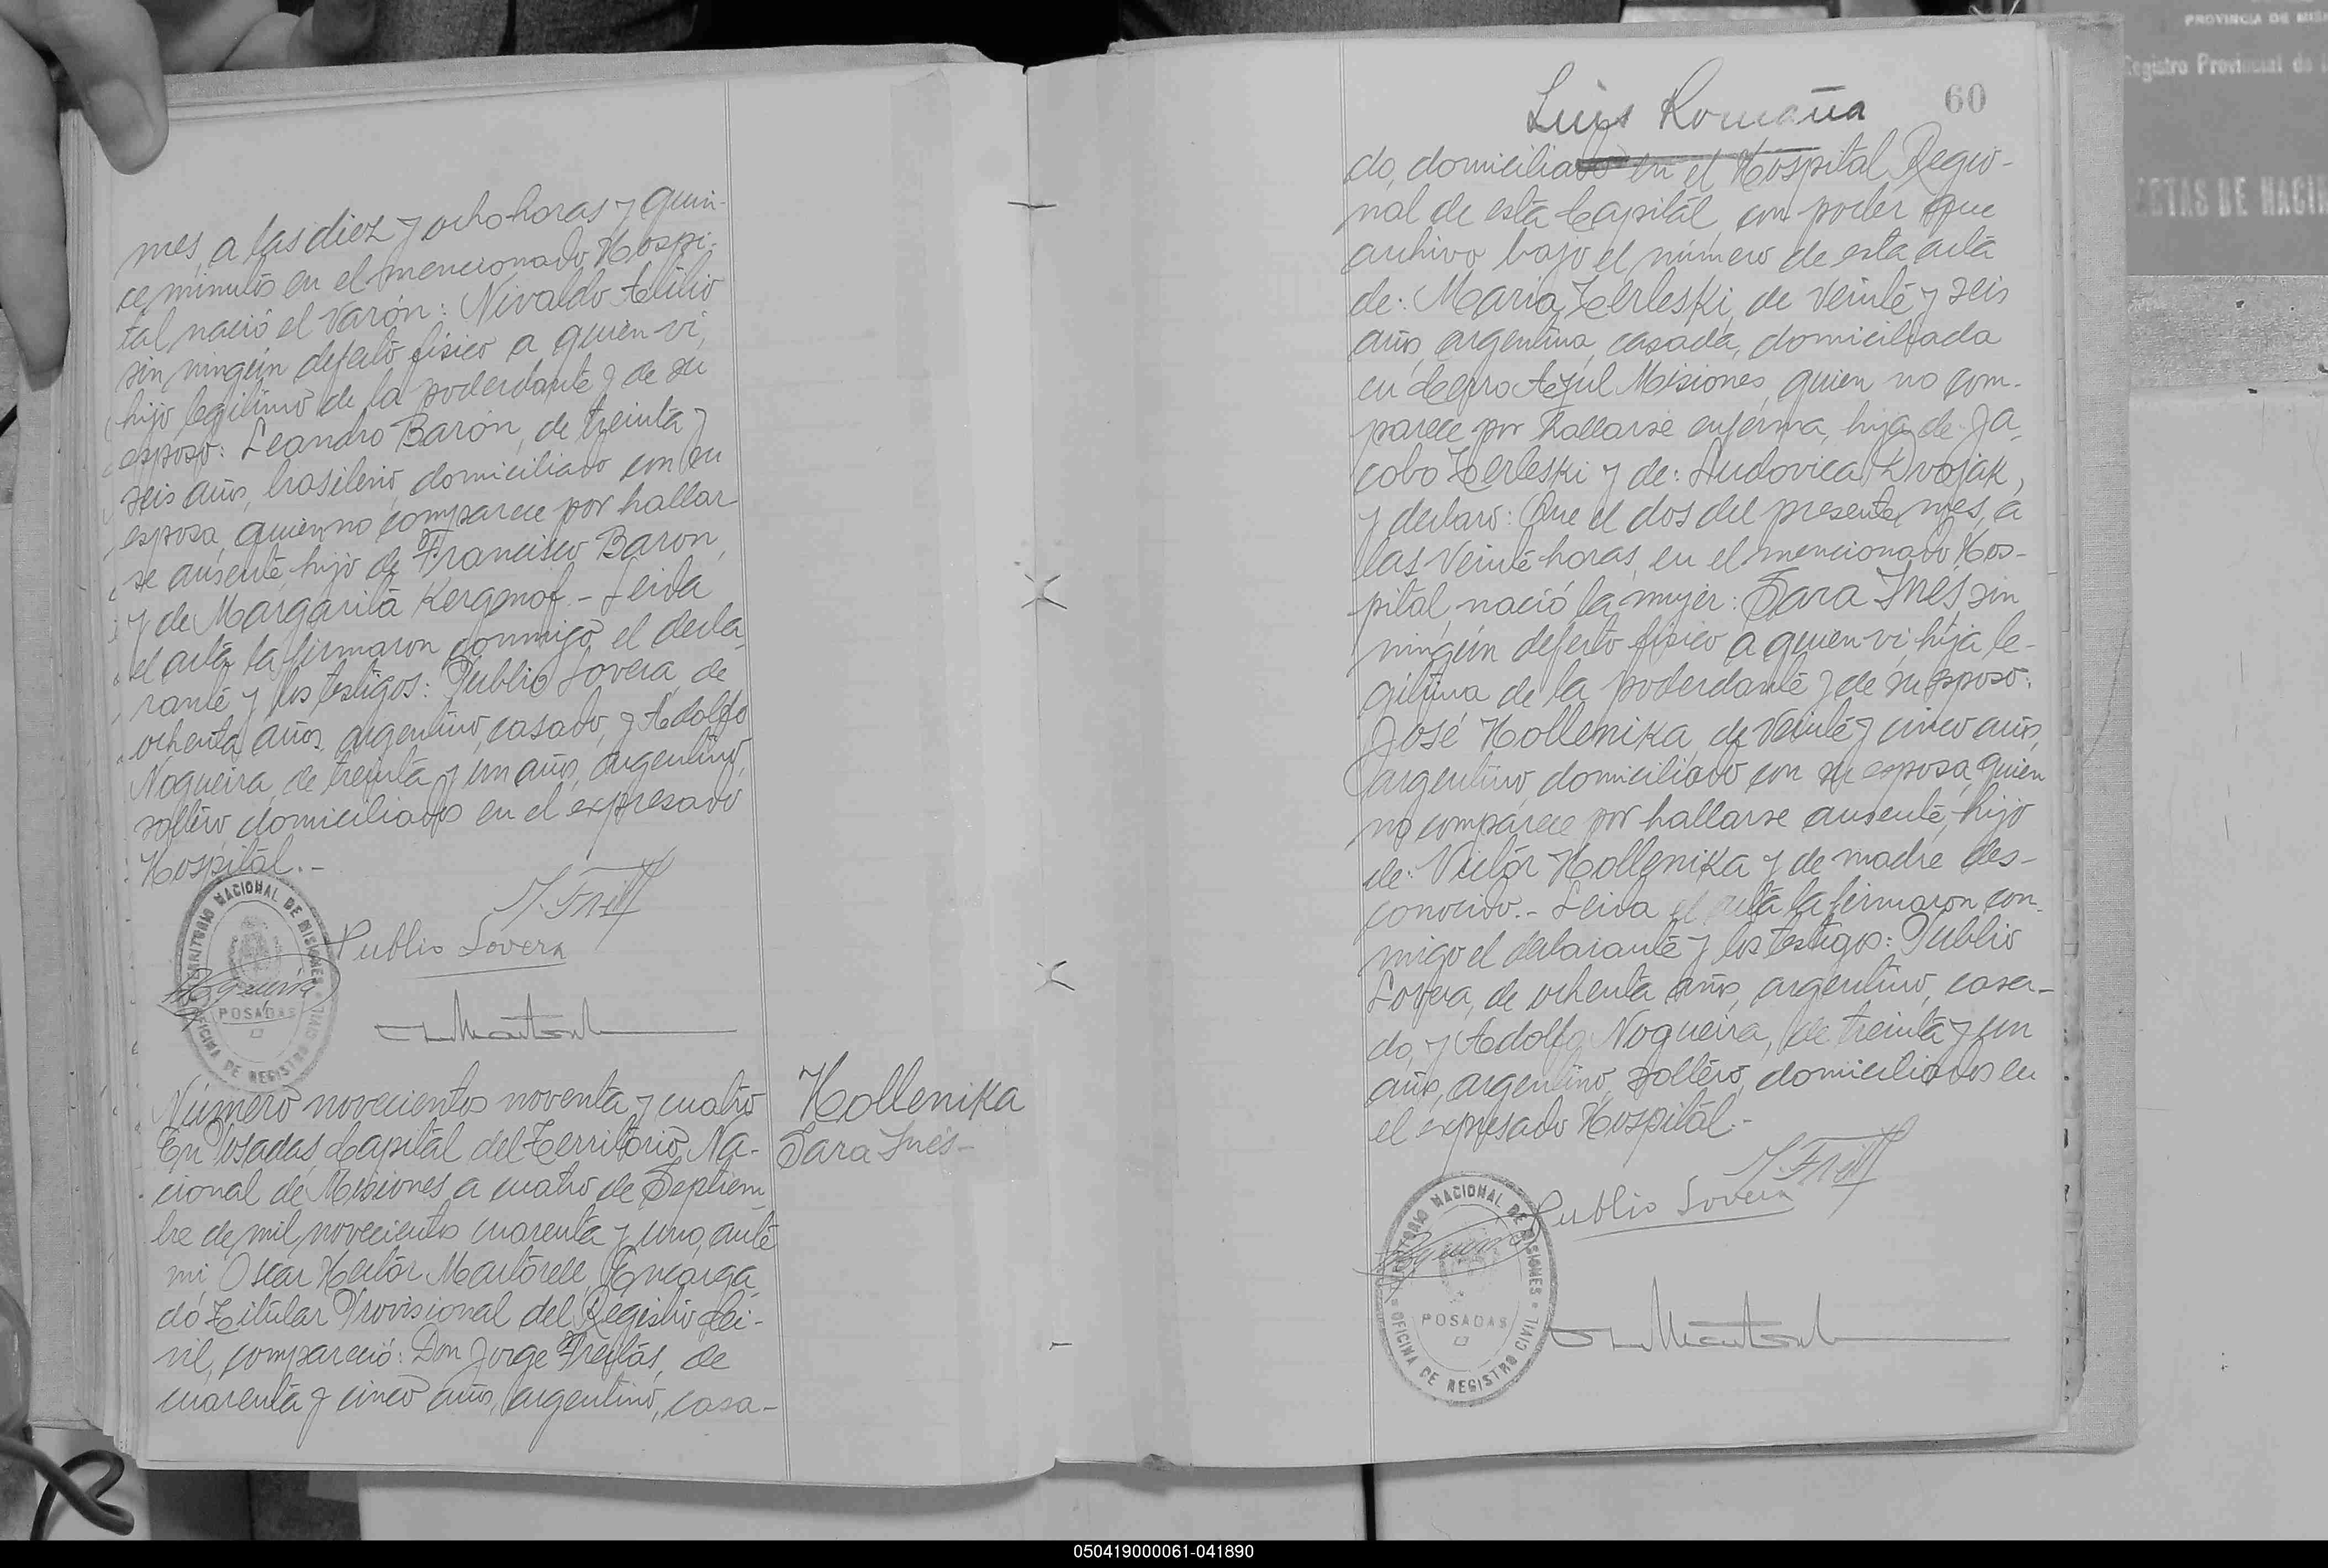 mes, a las diez y ocho horas y quin-
ce minutos en el mencionado Hospi-
tal nació el varón: Nivaldo Atilio
sin ningún defecto físico a quien vi,
hijo legítimo de la poderdante y de su
esposo: Leandro Barón, de treinta y
seis años, brasilero, domiciliado con su
esposa, quien no comparece por hallar
se ausente, hijo de Francisco Baron,
y de Margarita Kergmof.- Leida
el acta la firmaron conmigo el decla-
rante y los testigos: Publio Lovera, de
ochenta años, argentino, casado, y Adolfo
Nogueira, de treinta y un años, argentino,
soltero, domiciliados en el expresado
Hospital.-
Publio Lovera
TERRITORIO NACIONAL DE MISIONES
POSADAS
OFICINA DE REGISTRO CIVIL
Número novecientos noventa y cuatro
En Posadas, Capital del Territorio Na-
cional de Misiones, a cuatro de Septiem
bre de mil novecientos cuarenta y uno, ante
mi, Oscar Hector Martorell, Encarga
do Titular Provisional del Registro Ci-
vil, compareció: Don Jorge Freitas, de
cuarenta y cinco años, argentino, casa-
Hollenika
Sara Inés-
Luis Romaña
60
do, domiciliado en el Hospital Regio-
nal de esta Capital, con poder que
archivo bajo el número de esta acta
de: Maria Zerleski, de veinte y seis
años, argentina, casada, domiciliada
en Cerro Azul Misiones, quien no com-
parece por hallarse enferma, hija de Ja-
cobo Zerleski y de: Ludovica Dvojak,
y declaro: Que el dos del presente mes, a
las veinte horas, en el mencionado Hos-
pital, nació la mujer: Sara Inés, sin
ningún defecto físico a quien vi, hija le-
gítima de la poderdante y de su esposo:
José Hollenika, de veinte y cinco años,
argentino, domiciliado con su esposa, quien
no comparece por hallarse ausente, hijo
de: Victor Hollenika y de madre des-
conocido.- Leida el acta la firmaron con-
migo el declarante y los testigos: Publio
Lovera, de ochenta años, argentino, casa-
do, y Adolfo Nogueira, de treinta y un
años, argentino, soltero, domiciliados en
el expresado Hospital.-
Publio Lovera
TERRITORIO NACIONAL DE MISIONES
POSADAS
OFICINA DE REGISTRO CIVIL
PROVINCIA DE MIS
Registro Provincial de
ACTAS DE NACI
050419000061-041890